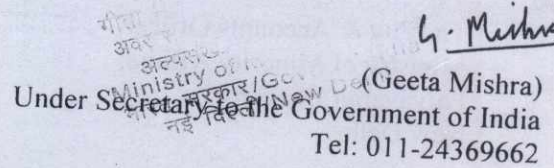 G. Mishra
(Geeta Mishra)
Under Secretary to the Government of India
Tel: 011-24369662
गीता
अवर
Ministry of
सरकार/Go
नई दिल्ली/New De